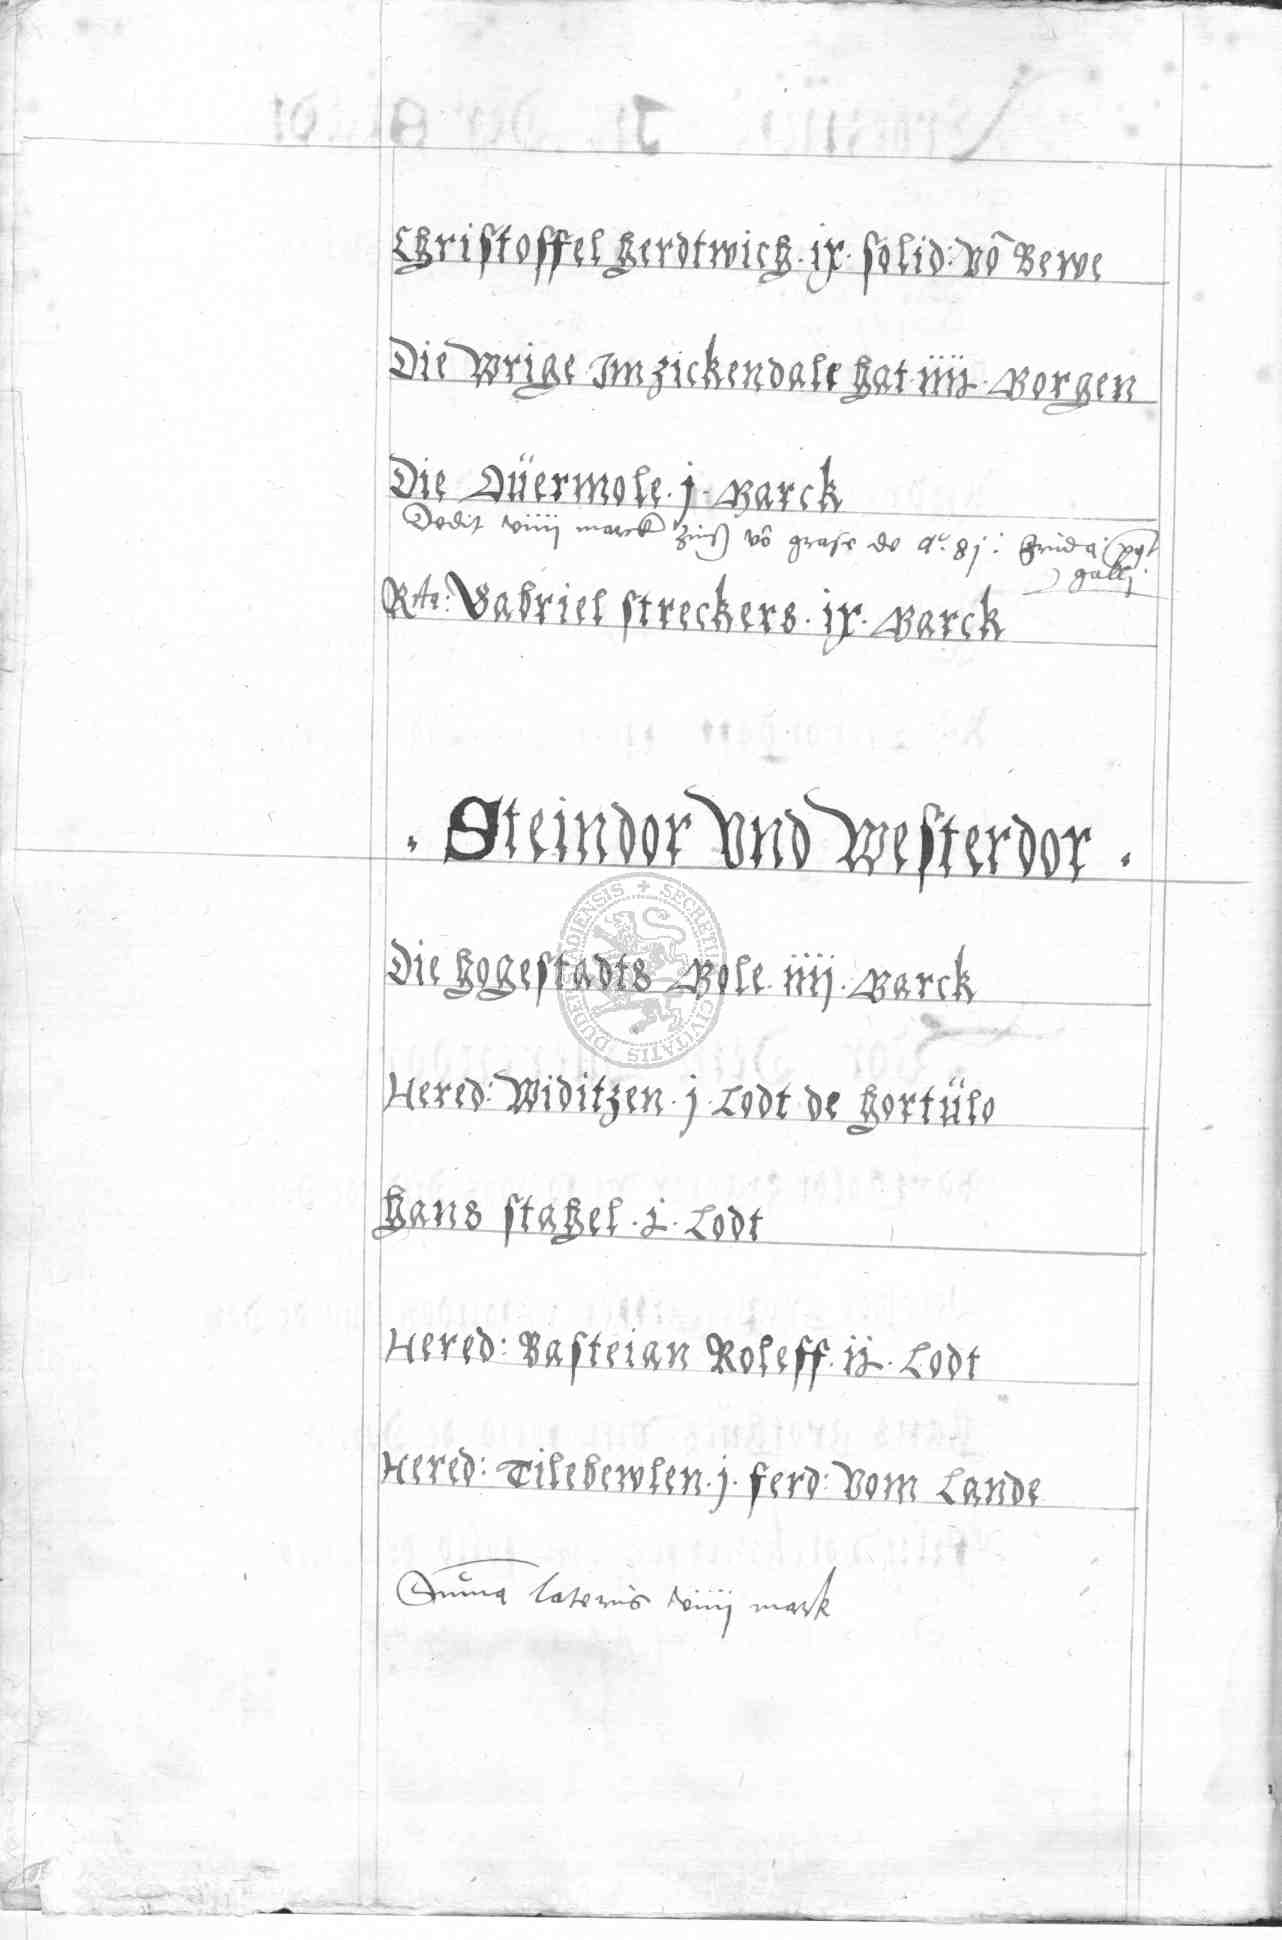 Christoffel Herdtwich · ix · solid: vō Bewe
Die Wrige Im zickendale hat iiij · Morgen
Die Düermole · j · Marck
Dedit viiij marck zinß vō grase de a° · 8j ·
galli
Rta: Gabriel streckers · ix · Marck
· Steindor Vnd Westerdor ·
Die Hogestadts Mole · iiij · Marck
Hered: Widitzen · j · Lodt de Hortülo
Hans stahel · j · Lodt
Hered: Basteian Roleff · ij · Lodt
Hered: Tilebewlen · j · ferd: Vom Lande
Suma lateris viiij mark
SECRETU CIVITATIS DUDERSTADIENSIS